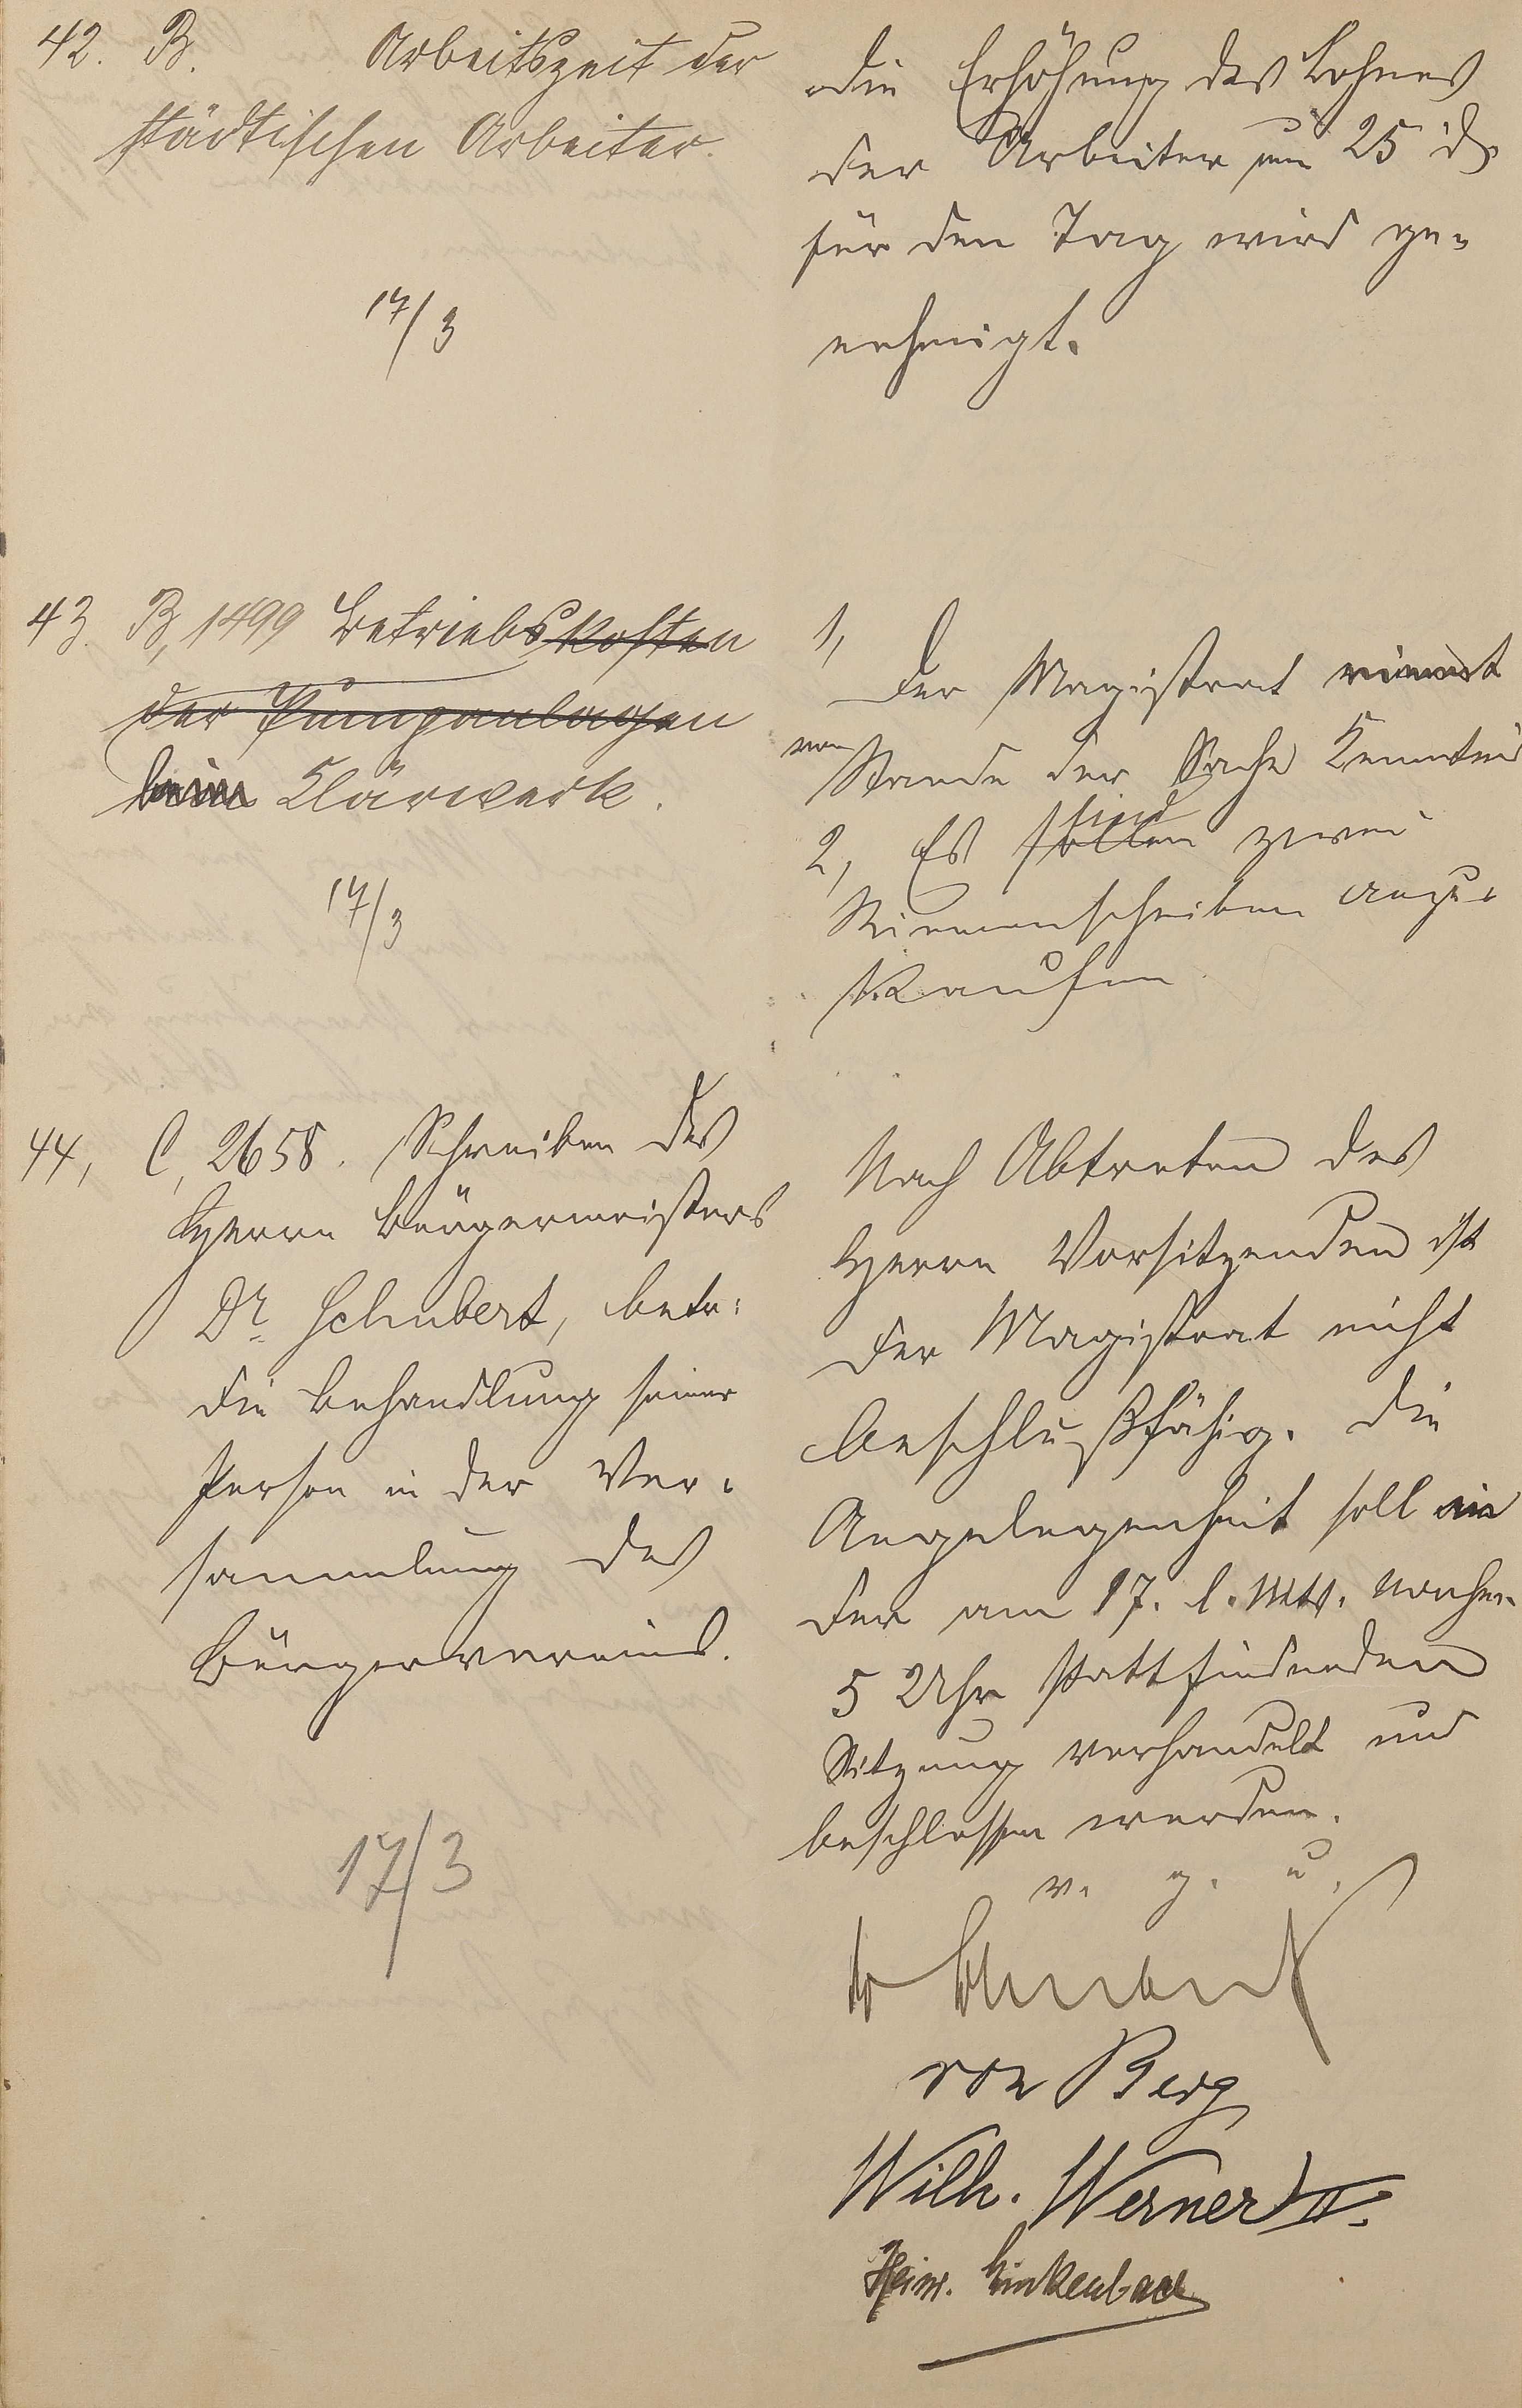 42. B. Arbeitszeit der
städtischen Arbeiter.
17/3
Die Erhöhung des Lohnes
der Arbeiter um 25 ₰
für den Tag wird ge-
nehmigt.
43. B, 1499 Betriebskosten
der Pumpanlagen
beim Klärwerk.
17/3
1,
Der Magistrat nimmt
vom Stande der Sache Kenntnis
2, Es sollen sind zwei
Riemenscheiben anzu-
kaufen
44, C, 2658. Schreiben des
Herrn Bürgermeisters
Dr. Schubert, betr:
die Behandlung seiner
Person in der Ver-
sammlung des
Bürgervereins.
17/3
Nach Abtreten des
Herrn Vorsitzenden ist
der Magistrat nicht
beschlußfähig. Die
Angelegenheit soll in
der am 17. l. Mts. nachm.
5 Uhr stattfindenden
Sitzung verhandelt und
beschlossen werden.
v. g. u.
Dr Schubert
von Berg
Wilh. Werner II.
Heinr. Linkenbach